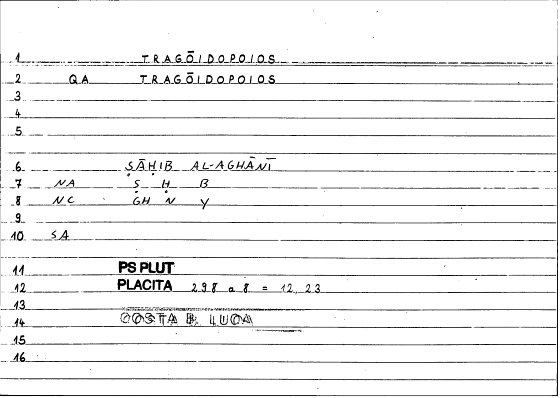 1 TRAGŌIDOPOIOS
2 QA TRAGŌIDOPOIOS
3
4
5
6 ṢĀḤIB AL-AGHĀNĪ
7 NA Ṣ Ḥ B
8 NC GH N Y
9
10 SA
11 PS PLUT
12 PLACITA 298 a 8 = 12, 23
13
14 COSTA B. LUCA
15
16